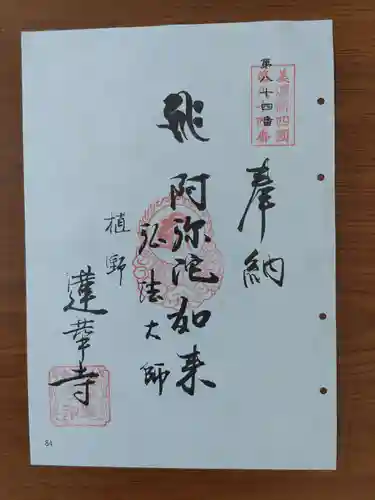 第八十四番
美濃新四国
奉納
阿弥陀如来
弘法大師
植野
蓮華寺
84